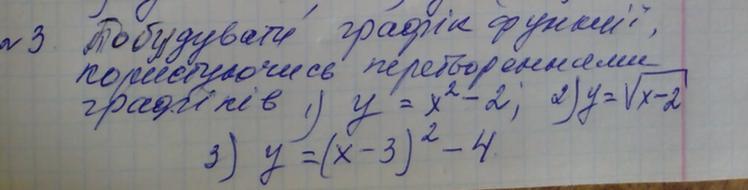 №3 Побудувати графік функції,
користуючись перетвореннями
графіків 1) y = x² - 2; 2) y = √(x-2)
3) y = (x - 3)² - 4